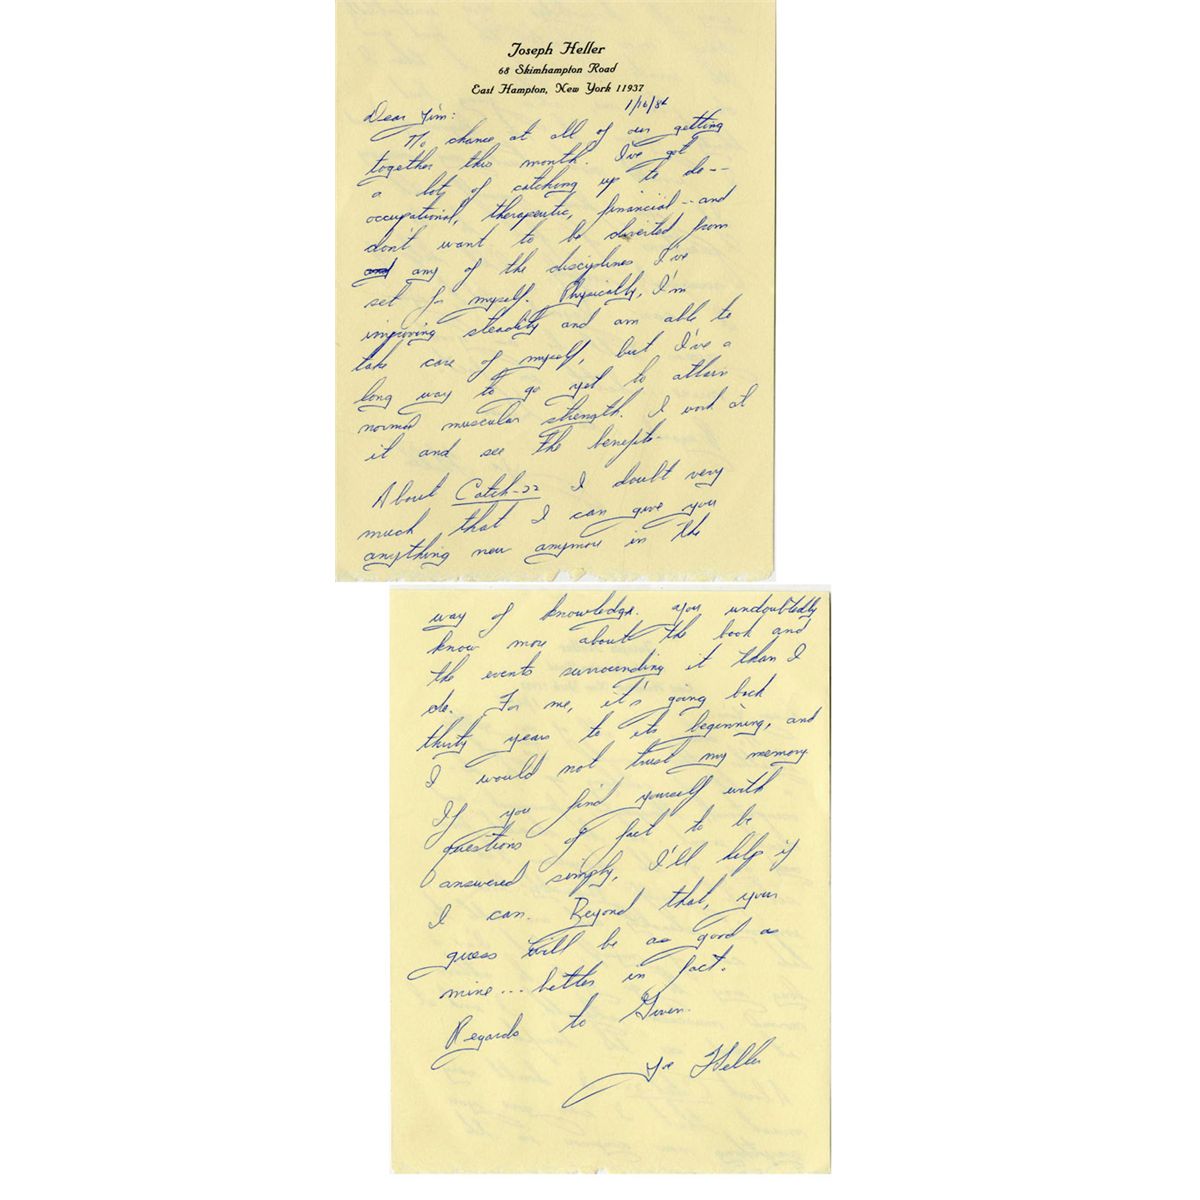 Joseph Heller
68 Skimhampton Road
East Hampton, New York 11937
1/16/84
Dear Jim:
No chance at all of our getting
together this month. I've got
a lot of catching up to do--
occupational, therapeutic, financial--and
don't want to be diverted from
and any of the disciplines I've
set for myself. Physically, I'm
improving steadily and am able to
take care of myself, but I've a
long way to go yet to attain
normal muscular strength. I work at
it and see the benefits.
About Catch-22 I doubt very
much that I can give you
anything new anymore in the
way of knowledge. You undoubtedly
know more about the book and
the events surrounding it than I
do. For me, it's going back
thirty years to its beginning, and
I would not trust my memory.
If you find yourself with
questions of fact to be
answered simply, I'll help if
I can. Beyond that, your
guess will be as good as
mine... better in fact.
Regards to
Joe Heller